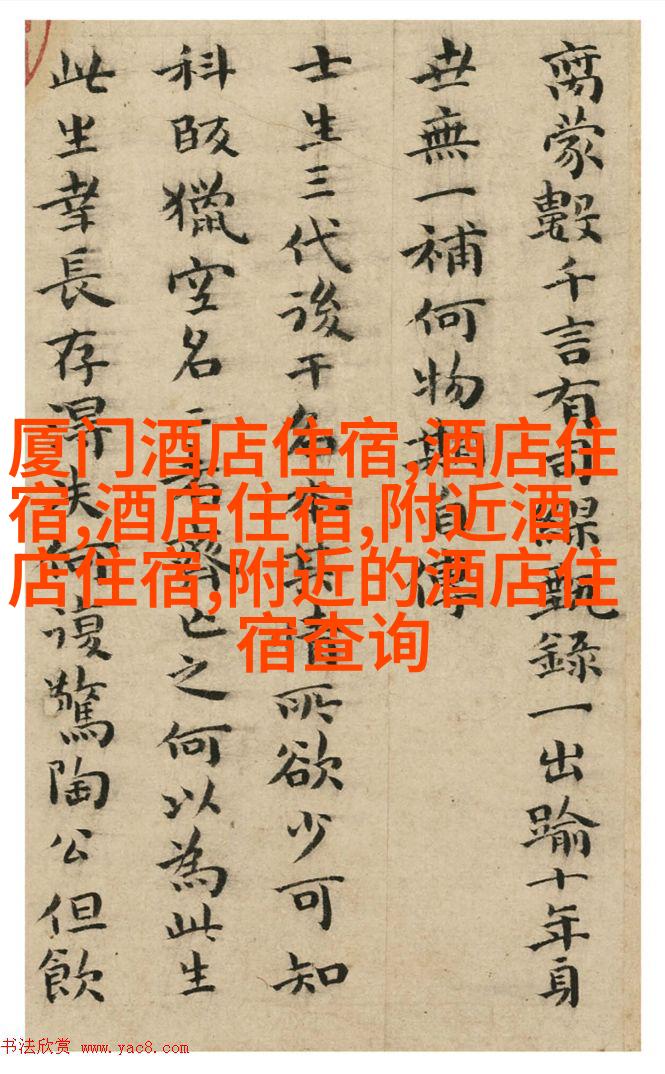 蒙數千言有司甄錄一出踰十年身
世無一補何物自
士生三代後干名所欲少可知
科獵空名之何以為此生
此生幸長存得失何復驚陶公但飲
厦门酒店住宿,酒店住
宿,酒店住宿,附近酒
店住宿,附近的酒店住
宿查询
书法欣赏 www.yac8.com